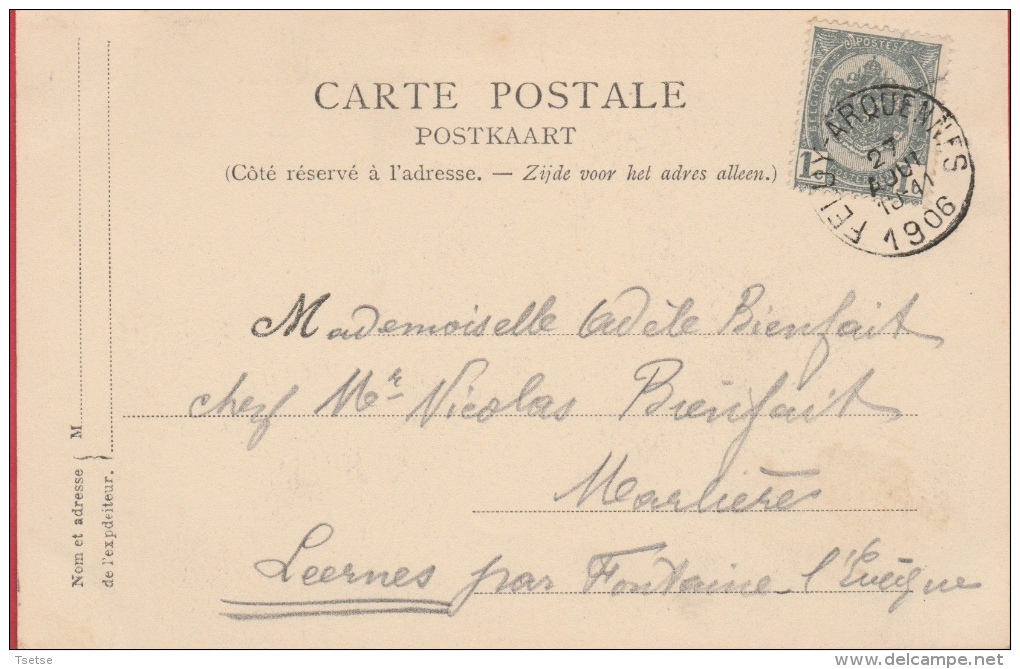 CARTE POSTALE
POSTKAART
(Côté réservé à l'adresse. — Zijde voor het adres alleen.)
POSTES
BELGIQUE
1 1
FELUY-ARQUENNES
27
AOUT
1906
Mademoiselle Adèle Bienfait
chez Mr Nicolas Bienfait
Marlière
Leernes par Fontaine l'Evêque
Nom et adresse { M
de l'expdeiteur. }
Tsetse
delcampe.net